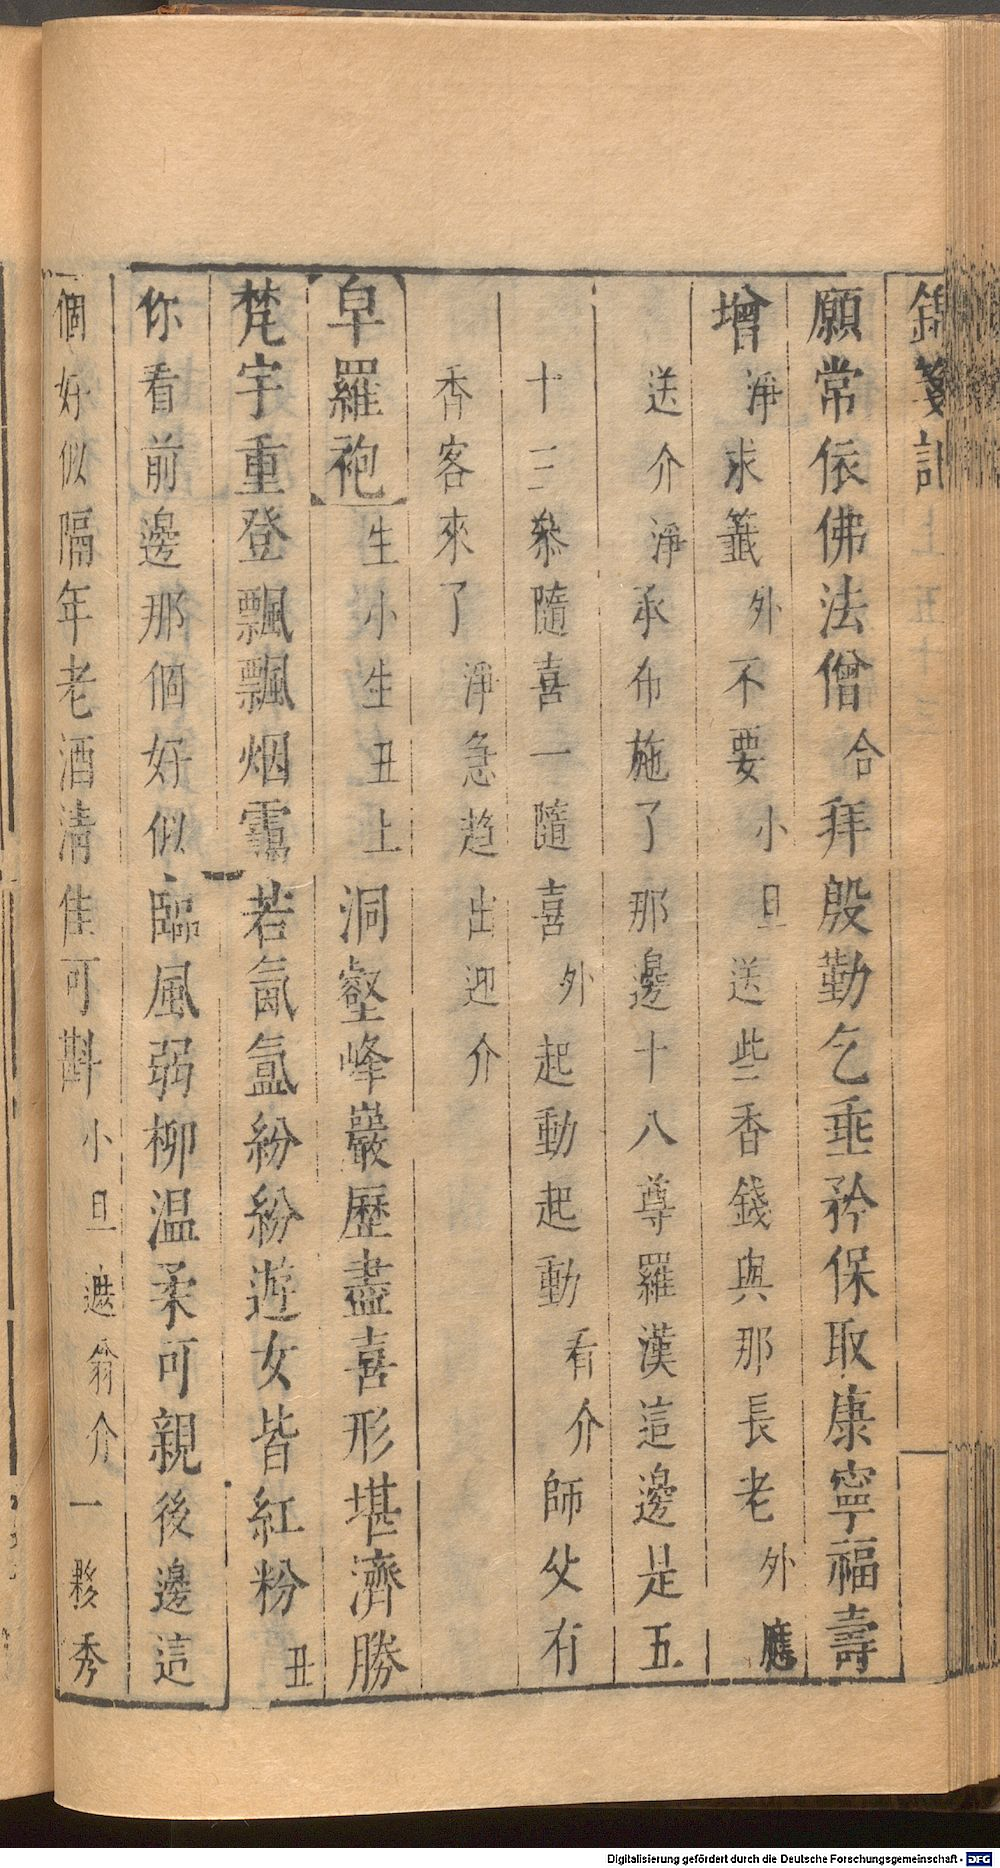 願常依佛法僧合拜殷勤乞垂矜保取康寧福壽
增淨求籤外不要小旦送些香錢與那長老外應
送介淨承布施了那邊十八尊羅漢這邊是五
十三叅隨喜一隨喜外起動起動看介師父有
香客來了淨急趋出迎介
皁羅袍生小生丑上洞壑峰巖歷盡喜形堪濟勝
梵宇重登飄飄烟靄若氤氳紛紛遊女皆紅粉丑
你看前邊那個好似臨風弱柳温柔可親後邊這
個好似隔年老酒清佳可斟小旦遮翁介一夥秀
Digitalisierung gefördert durch die Deutsche Forschungsgemeinschaft - DFG